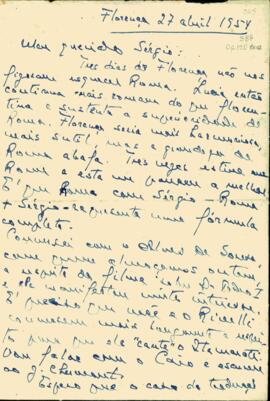 Florença 27 abril 1954
Meu querido Sérgio:
Tres dias de Florença não nos
fizeram esquecer Roma. Luiz então
continua mais romano do que floren-
tino e sustenta a superioridade de
Roma. Florença seria mais harmoniosa,
mais sutil, mas a grandeza de
Roma abafa. Tres vezes estive em
Roma e esta foi a melhor.
É que Roma com Sérgio - Roma
+ Sérgio - representa uma fórmula
completa.
Conversei com o Alves de Souza,
com quem almoçamos ontem,
a respeito do filme D. Pedro I
e ele manifestou muito interesse.
É preciso que você e o Rivelli
conversem mais longamente a respeito
para que ele "cante" o Itamarati.
Vou falar com o Caio e escrever
ao
Espero que o caso da tradução